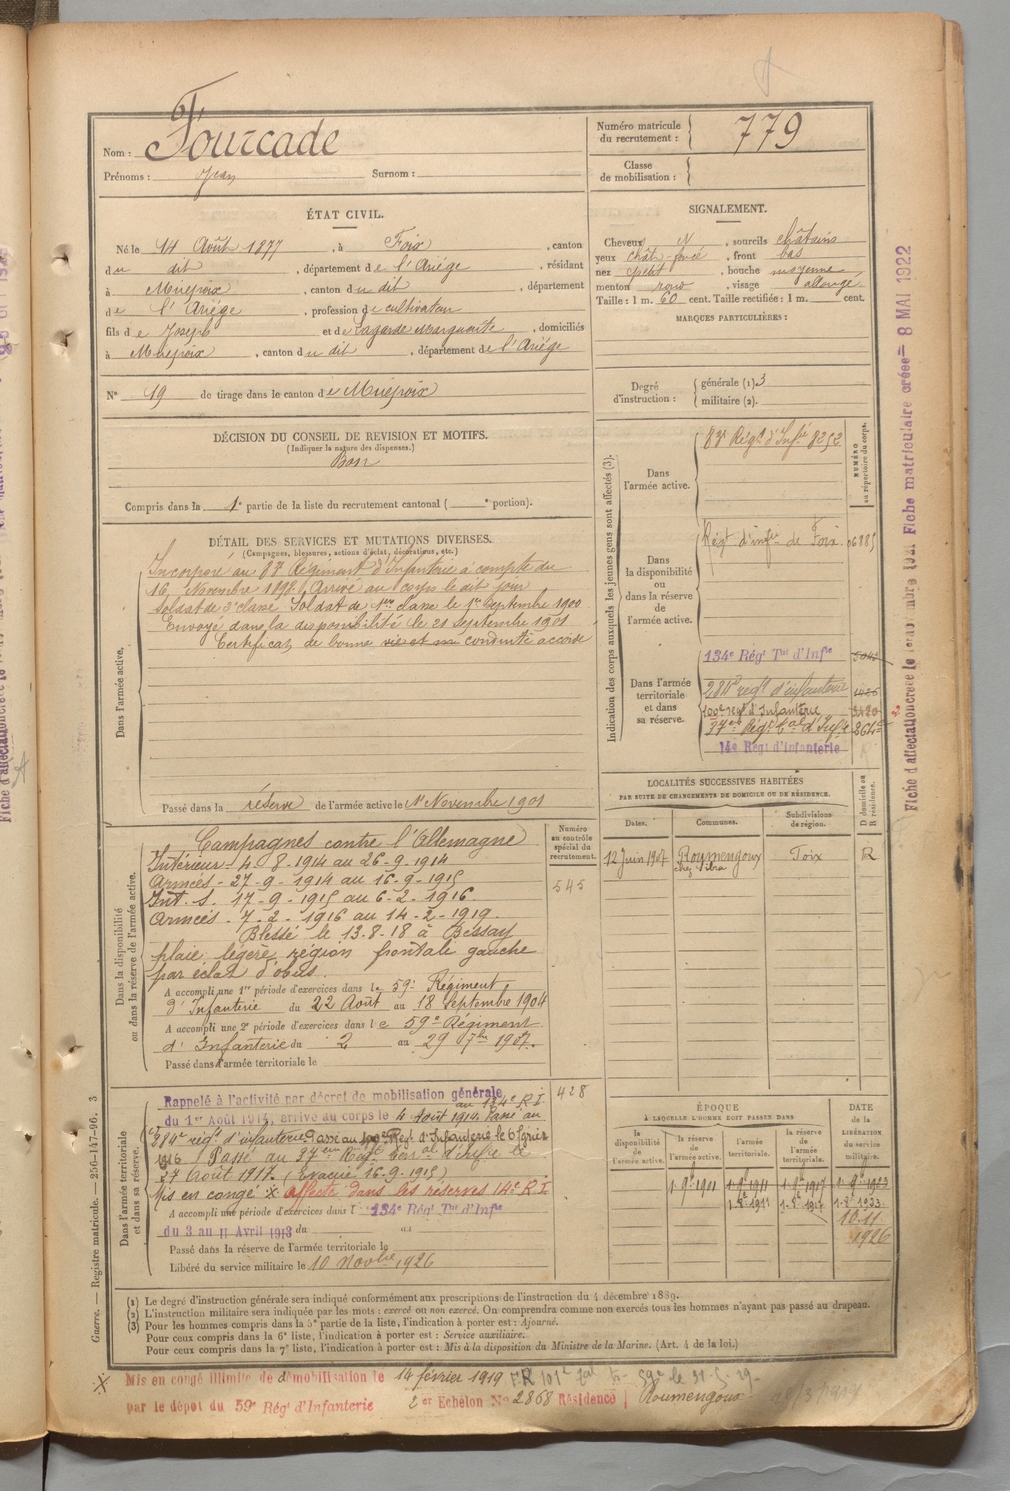 Nom : Fourcade
Prénoms : Jean Surnom :
Numéro matricule du recrutement : 779
Classe de mobilisation :
ÉTAT CIVIL.
Né le 14 Août 1877, à Foix, canton
du dit, département de l'Ariége, résidant
à Mirepoix, canton du dit, département
de l'Ariége, profession de cultivateur
fils de Joseph et de Lagarde Marguerite, domiciliés
à Mirepoix, canton du dit, département de l'Ariége
N° 19 de tirage dans le canton de Mirepoix
SIGNALEMENT.
Cheveux N, sourcils châtains
yeux chât-foncé, front bas
nez petit, bouche moyenne
menton rond, visage allongé
Taille : 1 m. 60 cent. Taille rectifiée : 1 m. cent.
MARQUES PARTICULIÈRES :
Degré d'instruction : générale (1) 3
militaire (2).
DÉCISION DU CONSEIL DE REVISION ET MOTIFS.
(Indiquer la nature des dispenses.)
Bon
Compris dans la 1e partie de la liste du recrutement cantonal ( e portion).
DÉTAIL DES SERVICES ET MUTATIONS DIVERSES.
(Campagnes, blessures, actions d'éclat, décorations, etc.)
Dans l'armée active,
Incorporé au 83e Régiment d'Infanterie à compter du
16 Novembre 1898. Arrivé au corps le dit jour
Soldat de 2e classe. Soldat de 1ère classe le 1er Septembre 1900
Envoyé dans la disponibilité le 21 Septembre 1901
Certificat de bonne conduite accordé
Passé dans la réserve de l'armée active le 1er Novembre 1901
Indication des corps auxquels les jeunes gens sont affectés (3).
NUMÉRO au répertoire du corps.
Dans l'armée active.
83e Régt d'Infie 8252
Dans la disponibilité ou dans la réserve de l'armée active.
Régt d'infie de Foix. 06885
Dans l'armée territoriale et dans sa réserve.
134e Régt Tal d'Infie
284e régt d'infanterie
100e régt d'Infanterie
37e Régt Tal d'Infie
14e Régt d'Infanterie
LOCALITÉS SUCCESSIVES HABITÉES
PAR SUITE DE CHANGEMENTS DE DOMICILE OU DE RÉSIDENCE.
D domicile ou R résidence.
Dates. Communes. Subdivisions de région.
12 Juin 1907 Roumengoux Foix R
Dans la disponibilité ou dans la réserve de l'armée active.
Numéro au contrôle spécial du recrutement.
545
Campagnes contre l'Allemagne
Intérieur - 4-8-1914 au 26-9-1914
Armées - 27-9-1914 au 16-9-1915
Int. S. 17-9-1915 au 6-2-1916
Armées - 7-2-1916 au 14-2-1919.
Blessé le 13-8-18 à Bessay
plaie légère région frontale gauche
par éclat d'obus.
A accompli une 1re période d'exercices dans le 59e Régiment
d'Infanterie du 22 Août au 18 Septembre 1904
A accompli une 2e période d'exercices dans le 59e Régiment
d'Infanterie du 2 au 29 7bre 1907.
Passé dans l'armée territoriale le
Dans l'armée territoriale et dans sa réserve,
428
Rappelé à l'activité par décret de mobilisation générale
du 1er Août 1914, arrivé au corps le 4 Août 1914 au 134e R.I. Passé au
284e régt d'infanterie Passé au 100e Régt d'Infanterie le 6 février
1916 Passé au 37ème Régt Terr al d'Infie le
27 Août 1917. (Évacué 16-9-1915)
Mis en congé X affecté dans les réserves 14e R.I.
A accompli une période d'exercices dans l 134e Régt Tal d'Infie
du 3 au 11 Avril 1913 du au
Passé dans la réserve de l'armée territoriale le
Libéré du service militaire le 10 Novbre 1926
ÉPOQUE
À LAQUELLE L'HOMME DOIT PASSER DANS
DATE DE LA LIBÉRATION du service militaire.
la disponibilité de l'armée active. la réserve de l'armée active. l'armée territoriale. la réserve de l'armée territoriale.
1-9e 1901 1-9e 1911 1-9e 1917 1-9e 1923
1-8e 1911 1-8e 1917 1-8e 1923
10.11
1926
(1) Le degré d'instruction générale sera indiqué conformément aux prescriptions de l'instruction du 4 décembre 1889.
(2) L'instruction militaire sera indiquée par les mots : exercé ou non exercé. On comprendra comme non exercés tous les hommes n'ayant pas passé au drapeau.
(3) Pour les hommes compris dans la 5e partie de la liste, l'indication à porter est : Ajourné.
Pour ceux compris dans la 6e liste, l'indication à porter est : Service auxiliaire.
Pour ceux compris dans la 7e liste, l'indication à porter est : Mis à la disposition du Ministre de la Marine. (Art. 4 de la loi.)
X Mis en congé illimité de démobilisation le 14 février 1919
par le dépot du 59e Régt d'Infanterie 2er Echelon No 2868 Résidence Roumengoux
Guerre. — Registre matricule. — 256-147-96. 3
8 MAI 1922